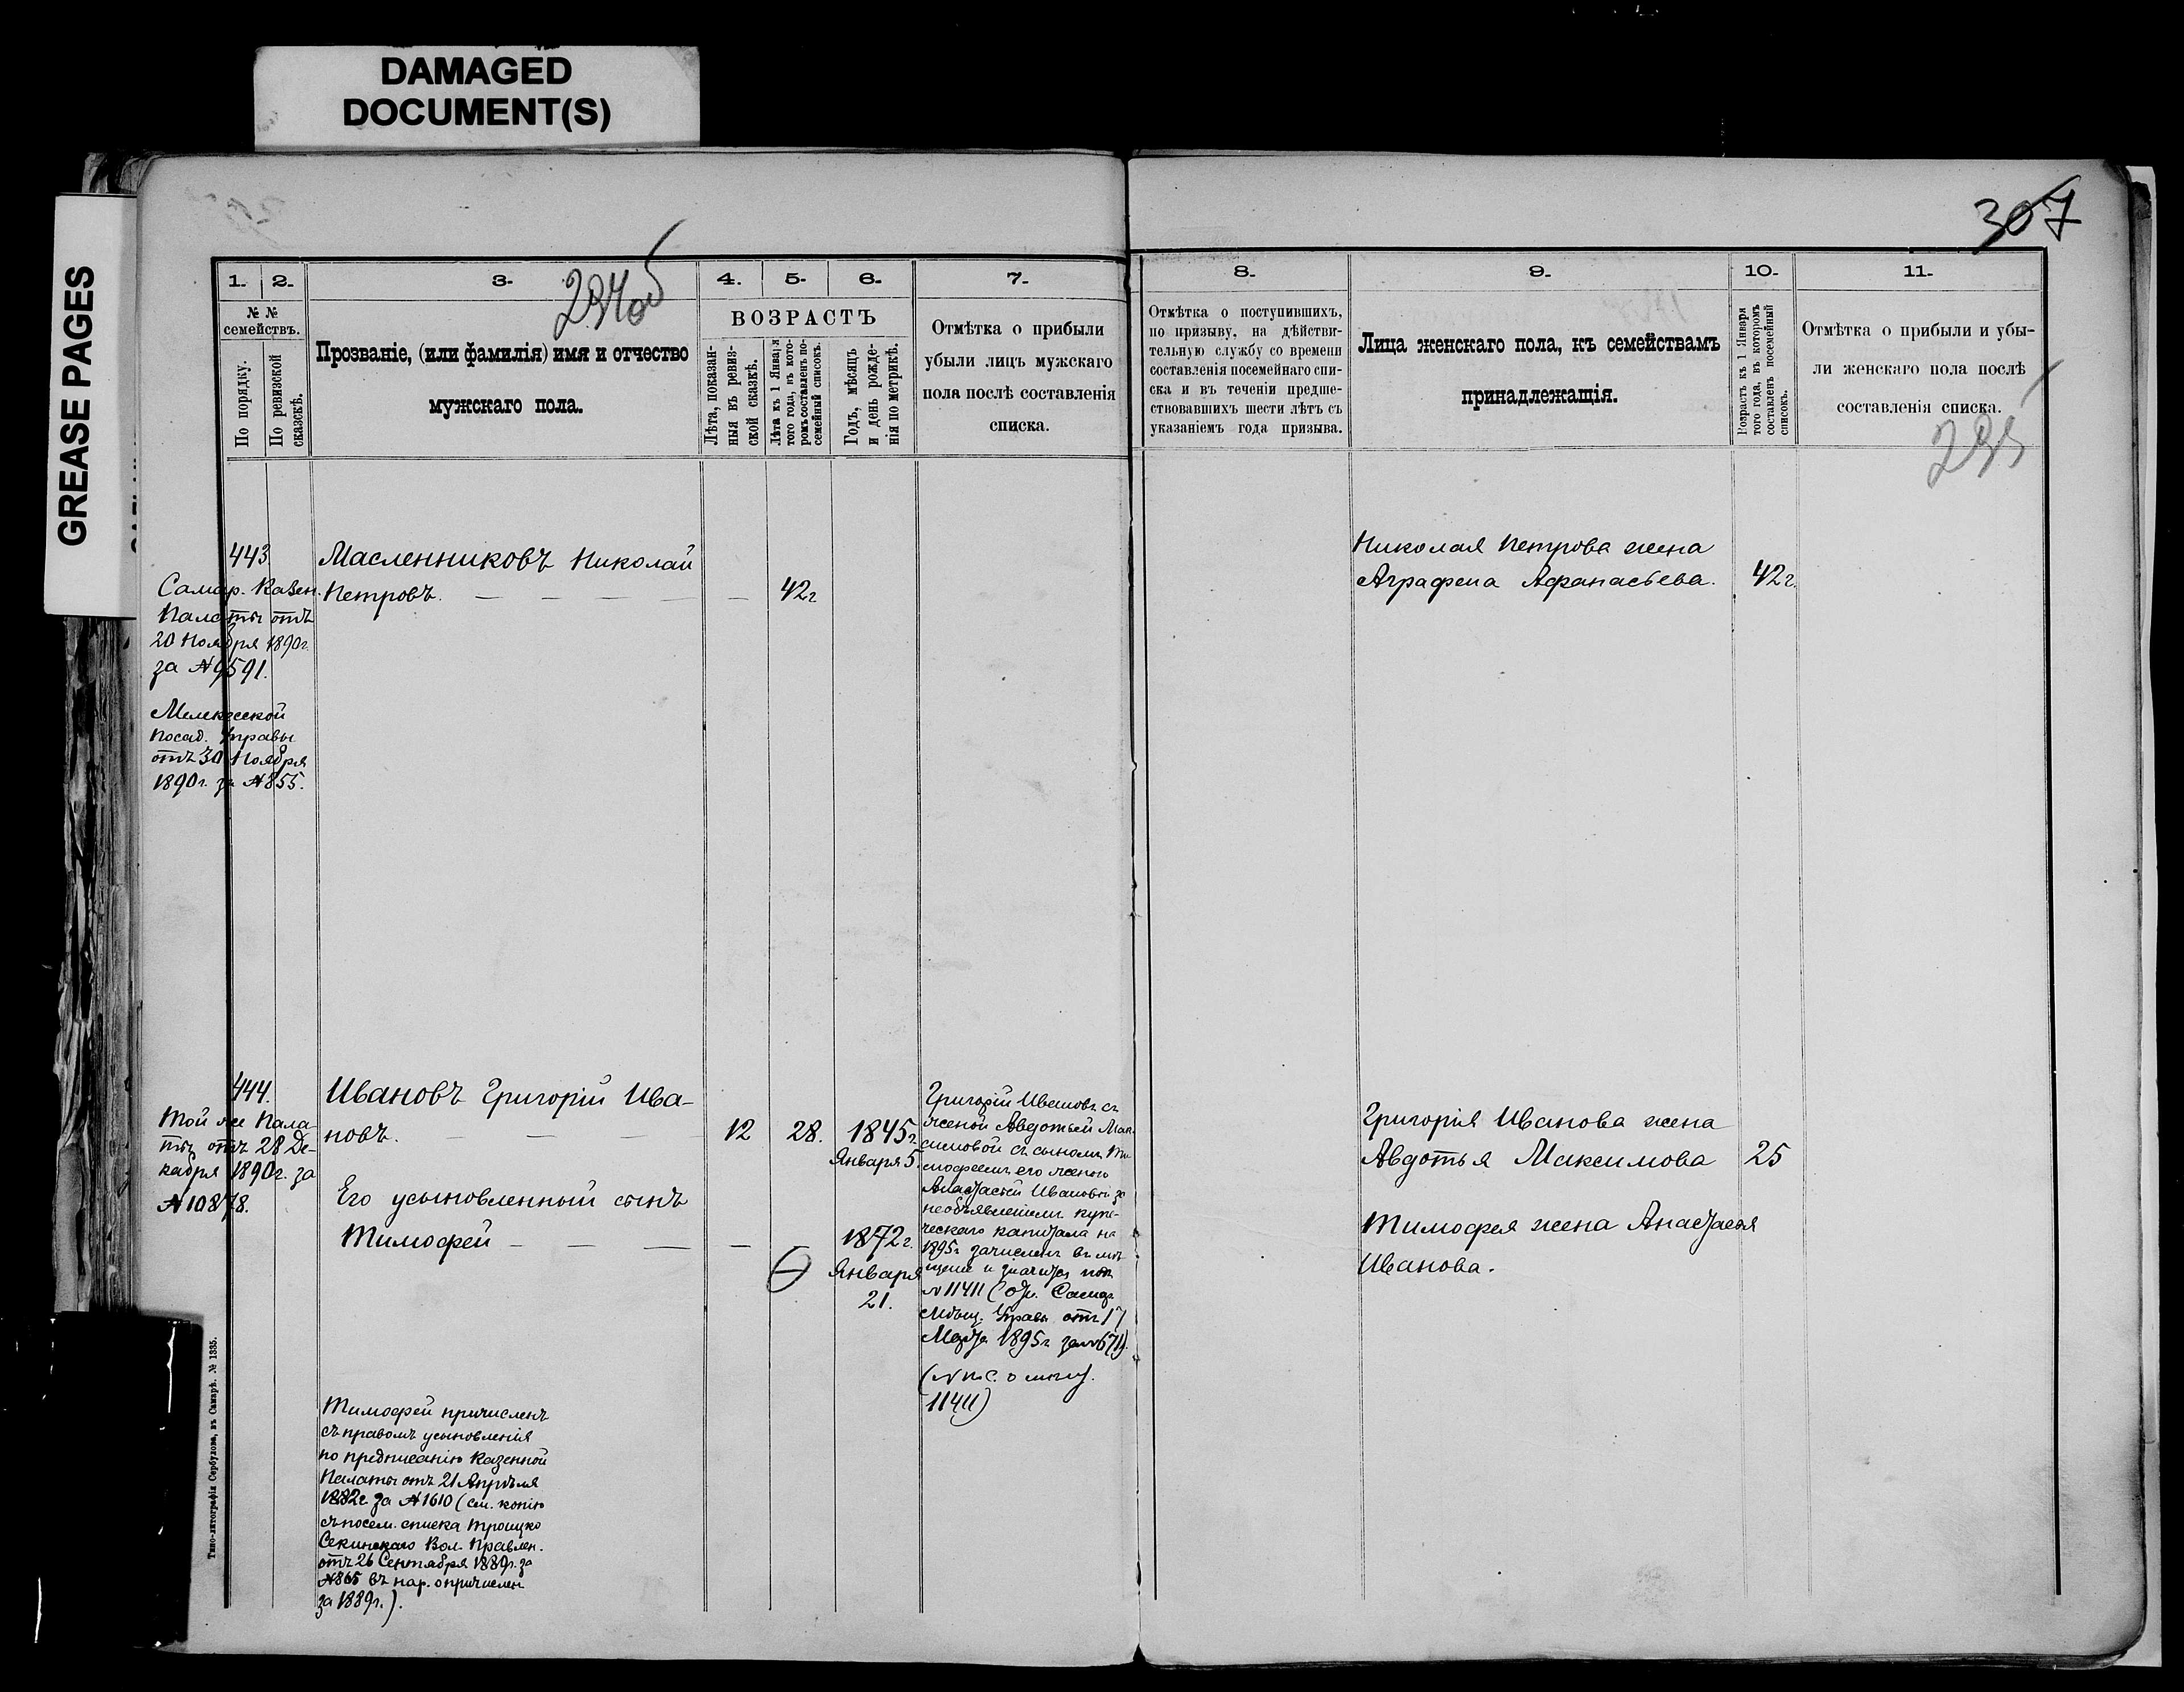 DAMAGED
DOCUMENT(S)
GREASE PAGES
307
294об
295
1. 2. 3. 4. 5. 6. 7. 8. 9. 10. 11.
№ №
семействъ.
По порядку.
По ревизской
сказскѣ.
Прозваніе, (или фамилія) имя и отчество
мужскаго пола.
ВОЗРАСТЪ
Лѣта, показан-
ныя въ ревиз-
ской сказкѣ.
Лѣта къ 1 Января
того года, въ кото-
ромъ составленъ по-
семейный списокъ.
Годъ, мѣсяцъ
и день рожде-
нія по метрикѣ.
Отмѣтка о прибыли
убыли лицъ мужскаго
пола послѣ составленія
списка.
Отмѣтка о поступившихъ,
по призыву, на дѣйстви-
тельную службу со времени
составленія посемейнаго спи-
ска и въ теченіи предше-
ствовавшихъ шести лѣтъ съ
указаніемъ года призыва.
Лица женскаго пола, къ семействамъ
принадлежащія.
Возрастъ къ 1 Января
того года, въ которомъ
составленъ посемейный
списокъ.
Отмѣтка о прибыли и убы-
ли женскаго пола послѣ
составленія списка.
443
Самар. Казен.
Палаты отъ
20 Ноября 1890г.
за №9591.
Мелекесской
посад. Управы
отъ 30 Ноября
1890г. за №855.
Масленниковъ Николай
Петровъ. 42г
Николая Петрова жена
Аграфена Афанасьева. 42г.
444.
Той же Пала-
ты отъ 28 Де-
кабря 1890г. за
№10878.
Ивановъ Григорій Ива-
новъ. 12 28. 1845г.
Января 5.
Его усыновленный сынъ
Тимофей 1872г.
Января
21.
Григорій Ивановъ съ
женой Авдотьей Мак-
симовой съ сыномъ Ти-
мофеемъ его женою
Анастасіей Ивановой за
необъявленіемъ купе-
ческаго капитала на
1895г зачисленъ въ мѣ-
щане и значится подъ
№11411 (от. Самар.
Мѣщ. Управы отъ 17
Марта 1895г за №671).
11411)
Григорія Иванова жена
Авдотья Максимова 25
Тимофея жена Анастасія
Иванова.
Тимофей причисленъ
съ правомъ усыновленія
по предписанію Казенной
Палаты отъ 21 Апрѣля
1882г за №1610 (см. копію
съ посем. списка Троицко
Секинскаго Вол. Правлен.
отъ 26 Сентября 1889г. за
№865 въ нар. о причислен
за 1889г.).
Типо-литографія Сербулова, въ Самарѣ. № 1335.